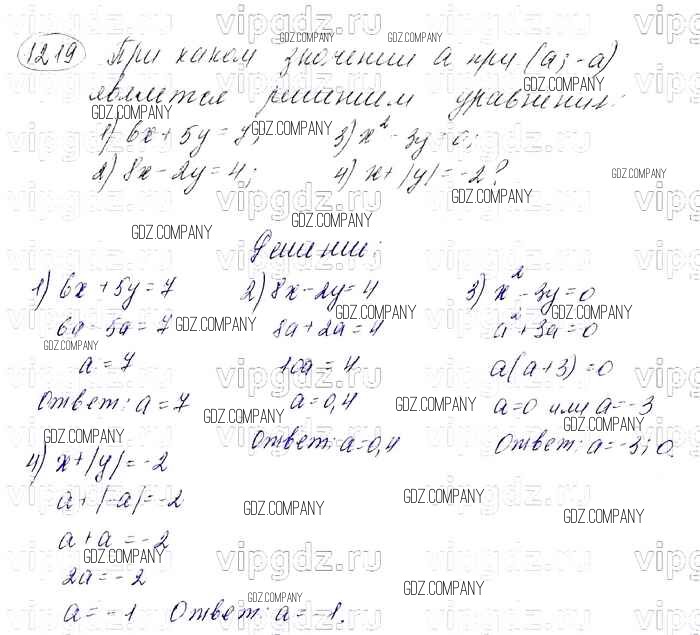 1219 При каком значении a при (a; -a)
является решением уравнения:
1) 6x + 5y = 7; 3) x² - 3y = 0;
2) 8x - 2y = 4; 4) x + |y| = -2?
Решение:
1) 6x + 5y = 7
6a - 5a = 7
a = 7
Ответ: a = 7
2) 8x - 2y = 4
8a + 2a = 4
10a = 4
a = 0,4
Ответ: a = 0,4
3) x² - 3y = 0
a² + 3a = 0
a(a + 3) = 0
a = 0 или a = -3
Ответ: a = -3; 0.
4) x + |y| = -2
a + |-a| = -2
a + a = -2
2a = -2
a = -1 Ответ: a = -1.
GDZ.COMPANY
vipgdz.ru